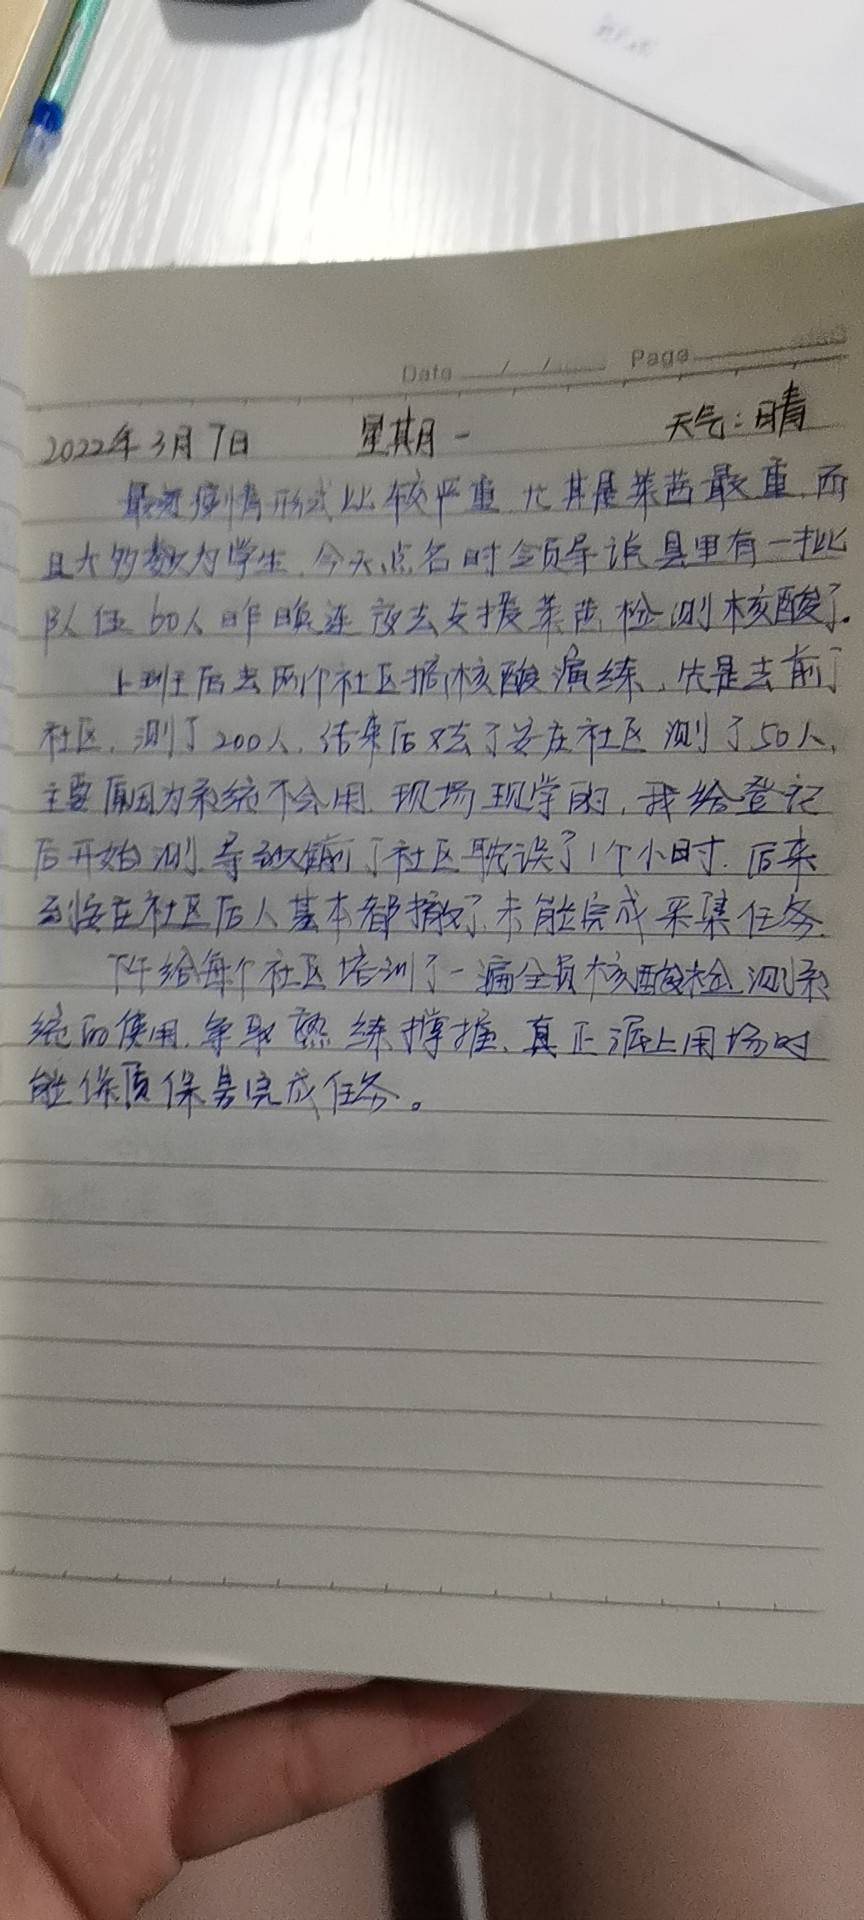 Date / / Page
2022年3月7日 星期一 天气:晴
最近疫情形式比较严重 尤其是莱西最重,而
且大多数为学生,今天点名时 领导说县里有一批
队伍60人 昨晚连夜去支援莱西检测核酸了。
上班后去两个社区搞核酸演练,先是去前
社区,测了200人,结束后又去了 社区 测了50人,
主要原因为系统不会用,现场现学的,我给登记
后开始测 导致 社区耽误了1个小时,后来
到 社区后人基本都撤了,未能完成采集任务,
下午给每个社区培训了一遍全员核酸检测系
统的使用,争取熟练撑握,真正派上用场时
能保质保量完成任务。